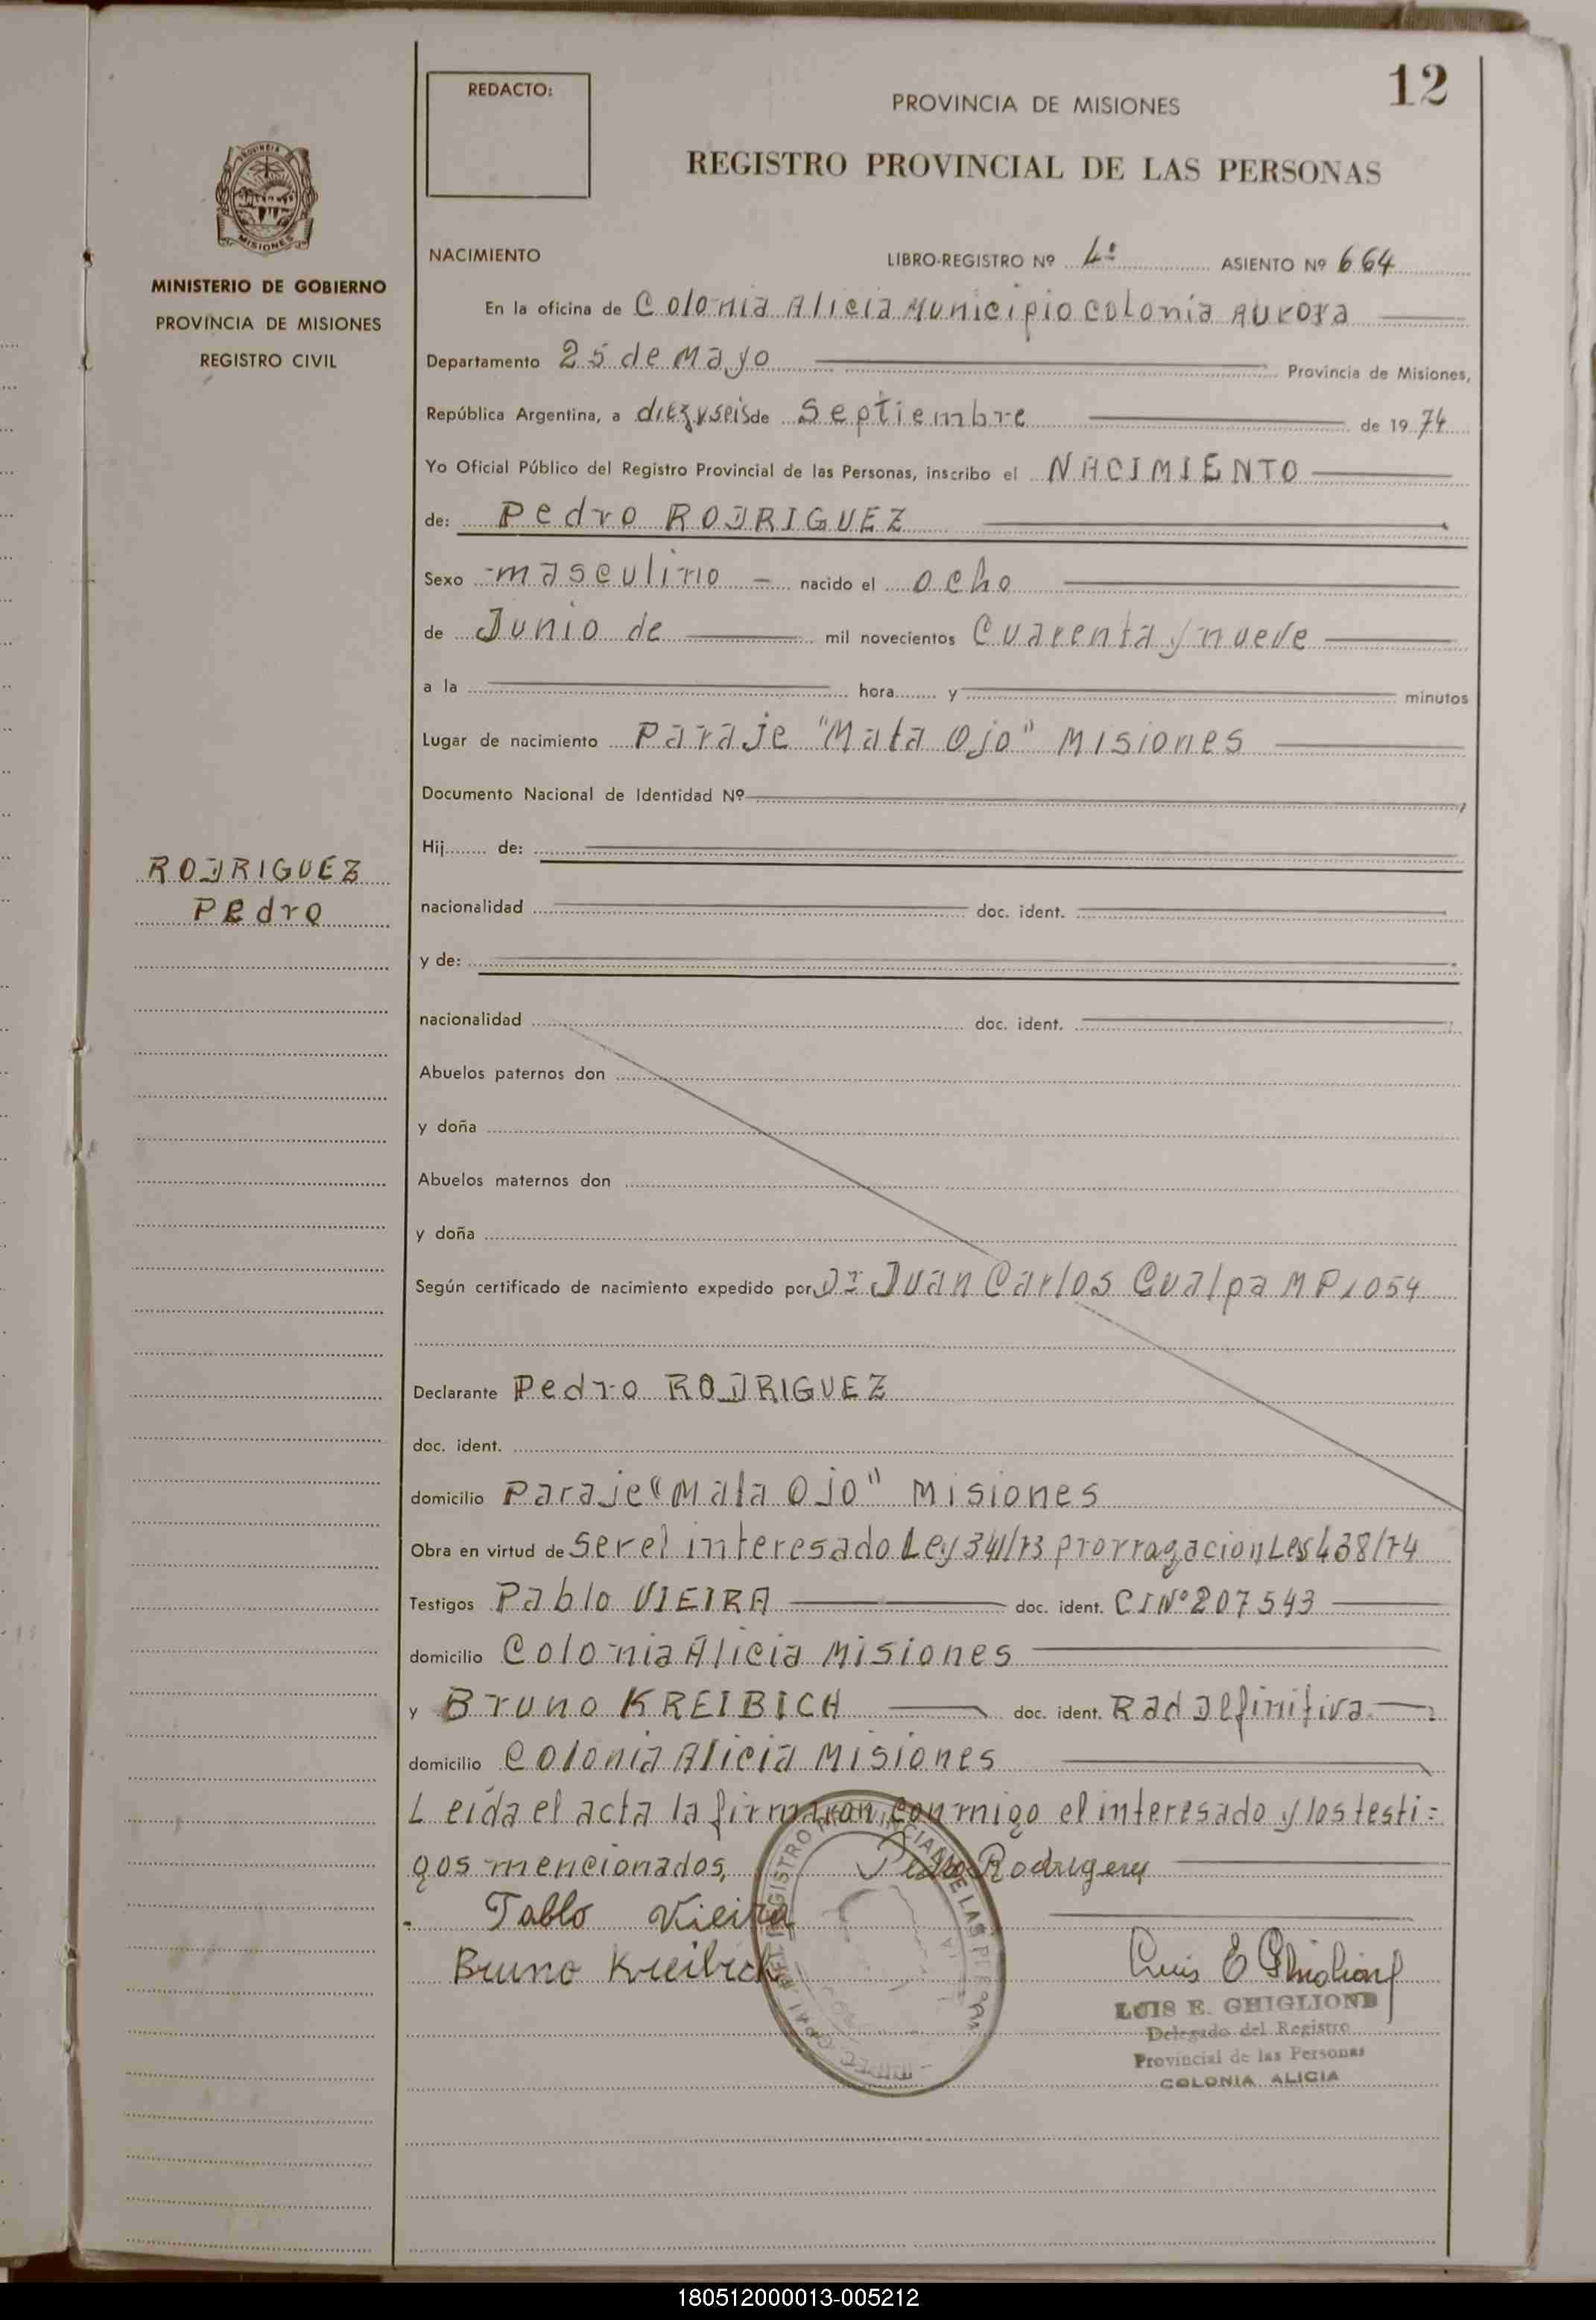 12
REDACTO:
PROVINCIA DE MISIONES
REGISTRO PROVINCIAL DE LAS PERSONAS
PROVINCIA DE
MISIONES
MINISTERIO DE GOBIERNO
PROVINCIA DE MISIONES
REGISTRO CIVIL
NACIMIENTO LIBRO-REGISTRO Nº 4º ASIENTO Nº 664
En la oficina de Colonia Alicia Municipio Colonia Aurora
Departamento 25 de Mayo Provincia de Misiones,
República Argentina, a diezyseis de Septiembre de 1974
Yo Oficial Público del Registro Provincial de las Personas, inscribo el NACIMIENTO
de: Pedro RODRIGUEZ
Sexo masculino nacido el ocho
de Junio de mil novecientos Cuarenta y nueve
a la hora y minutos
Lugar de nacimiento Paraje "Mata Ojo" Misiones
Documento Nacional de Identidad Nº
Hij de:
RODRIGUEZ
Pedro
nacionalidad doc. ident.
y de:
nacionalidad doc. ident.
Abuelos paternos don
y doña
Abuelos maternos don
y doña
Según certificado de nacimiento expedido por Dr Juan Carlos Gualpa MP 1054
Declarante Pedro RODRIGUEZ
doc. ident.
domicilio Paraje "Mata Ojo" Misiones
Obra en virtud de ser el interesado Ley 341/73 prorragacion Ley 438/74
Testigos Pablo VIEIRA doc. ident. CI Nº 207543
domicilio Colonia Alicia Misiones
y Bruno KREIBICH doc. ident. Rad Definitiva
domicilio Colonia Alicia Misiones
Leída el acta la firmaron conmigo el interesado y los testi=
gos mencionados, Pedro Rodriguez
Pablo Vieira
Bruno Kreibich Luis E Ghiglione
LUIS E. GHIGLIONE
Delegado del Registro
Provincial de las Personas
COLONIA ALICIA
REGISTRO PROVINCIAL DE LAS PERSONAS
180512000013-005212